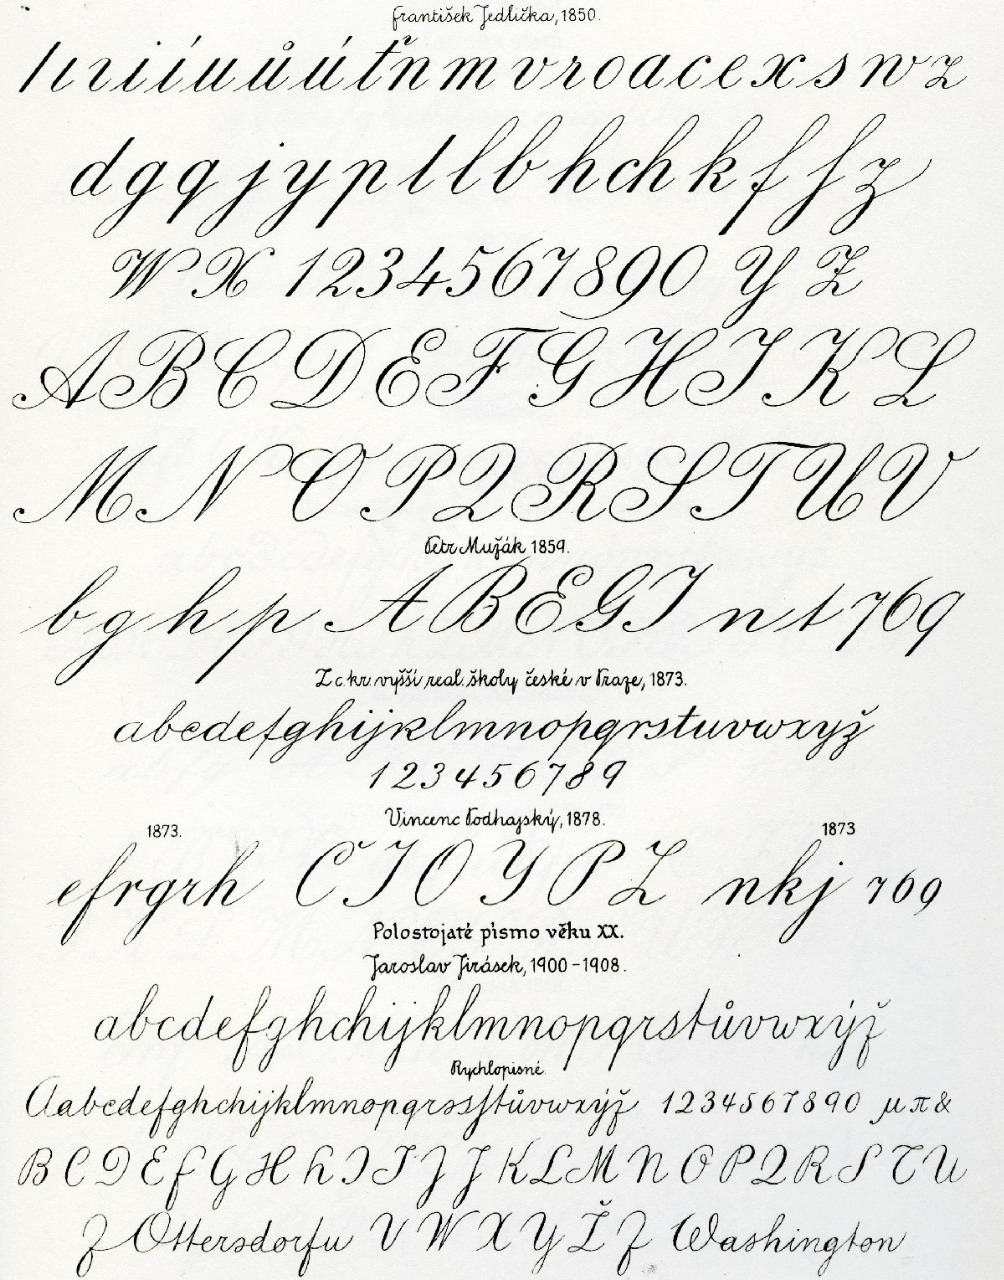 František Jedlička, 1850.
l ı r i í u ů ú ť n m v r o a c e x s w z
d g q j y p l l b h ch k f ſ z
W X 1 2 3 4 5 6 7 8 9 0 Y Z
A B C D E F G H I K L
M N O P Q R S T U V
Petr Mužák 1859.
b g h p A B E G I n t 7 6 9
Z c. kr. vyšší real. školy české v Praze, 1873.
abcdefghijklmnopqrstuvwxyž
1 2 3 4 5 6 7 8 9
Vincenc Podhajský, 1878.
1873. 1873
efrgrh C I O Y P Z nkj 7 6 9
Polostojaté písmo věku XX.
Jaroslav Jirásek, 1900-1908.
abcdefghchijklmnopqrstůvwxýž
Rychlopisné
Aabcdefghchijklmnopqrsſtůvwxýž 1 2 3 4 5 6 7 8 9 0 µ π &
B C D E F G H h I I J J K L M N O P Q R S T U
Z Ottersdorfu V W X Y Ž Z Washington